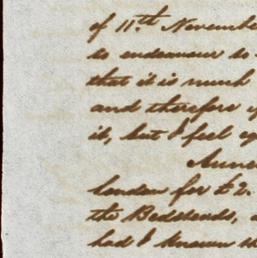 of 11th Novembe
to endeavour to
that it is much
and therefore y
it, but I feel eq
Annex
London for £2.
the Bedsteads, a
had I known th